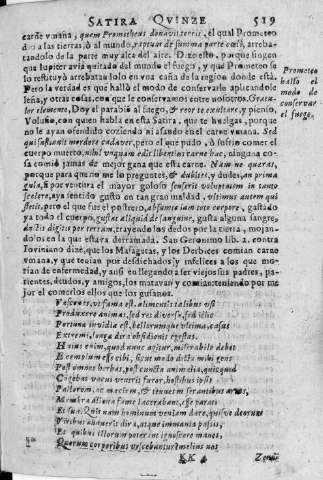 SATIRA QVINZE 519
carne vmana, quem Prometheus donauit terris, el qual Prometeo
dio a las tierras, ò al mundo, raptum de summa parte cœli, arreba-
tandolo de la parte muy alta del aire. Dize esto, porque fingen
que Iupiter auia quitado del mundo el fuego, y que Prometeo se
lo restituyò arrebatandolo en vna caña de la region donde està.
Pero la verdad es que hallò el modo de conseruarle aplicandole
leña, y otras cosas, con que le conseruamos entre nosotros. Gratu-
lor elemento, Doy el parabiẽ al fuego, & reor te exultare, y pienso,
Volusio, con quien hablo en esta Satira, que te huelgas, porque
no le ayan ofendido coziendo ni asando en el carne vmana. Sed
qui sustinuit mordere cadauer, pero el que pudo, ò sufrio comer el
cuerpo muerto, nihil vnquam edit libentius carne hac, ninguna co-
sa comiò jamas de mejor gana que esta carne. Nam ne quæras,
porque para que no me lo preguntes, & dubites, y dudes, an prima
gula, si por ventura el mayor goloso senserit voluptatem in tanto
scelere, aya sentido gusto en tan grande maldad, vltimus autem qui
stetit, pero el que fue el postrero, absumto iam toto corpore, gastado
ya todo el cuerpo, gustat aliquid de sanguine, gusta alguna sangre,
ductis digitis per terram, trayendo los dedos por la tierra, mojan-
dolos en la que estaua derramada. San Geronimo lib. 2. contra
Iouiniano dize, que los Masagetas, y los Derbices comian carne
vmana, y que tenian por desdichados y infelices a los que mo-
rian de enfermedad, y ansi en llegando a ser viejos sus padres, pa-
rientes, deudos, y amigos, los matauan y comian teniendo por me
jor el comerlos ellos que los gusanos.
Prometeo
hallò el
modo de
conseruar
el fuego.
Vascones, vt fama est, alimentis talibus vsi
Produxere animas, sed res diuersa, sed illic
Fortunæ inuidia est, bellorumque vltima, casus
Extremi, longæ dira obsidionis egestas.
Huius enim, quod nunc agitur, miserabile debet
Exemplum esse cibi, sicut modo dicta mihi gens
Post omnes herbas, post cuncta animalia, quicquid
Cogebat vacui ventris furor, hostibus ipsis
Pallorem, ac maciem, & tenues miserantibus artus,
Membra aliena fame lacerabant, esse parati
Et sua. Quis nam hominum veniam dare, quisve deorum
Viribus abnuerit dira, atque immania passis,
Et quibus illorum poterant ignoscere manes,
Quorum corporibus vescebantur? melius nos
KK Zenõ